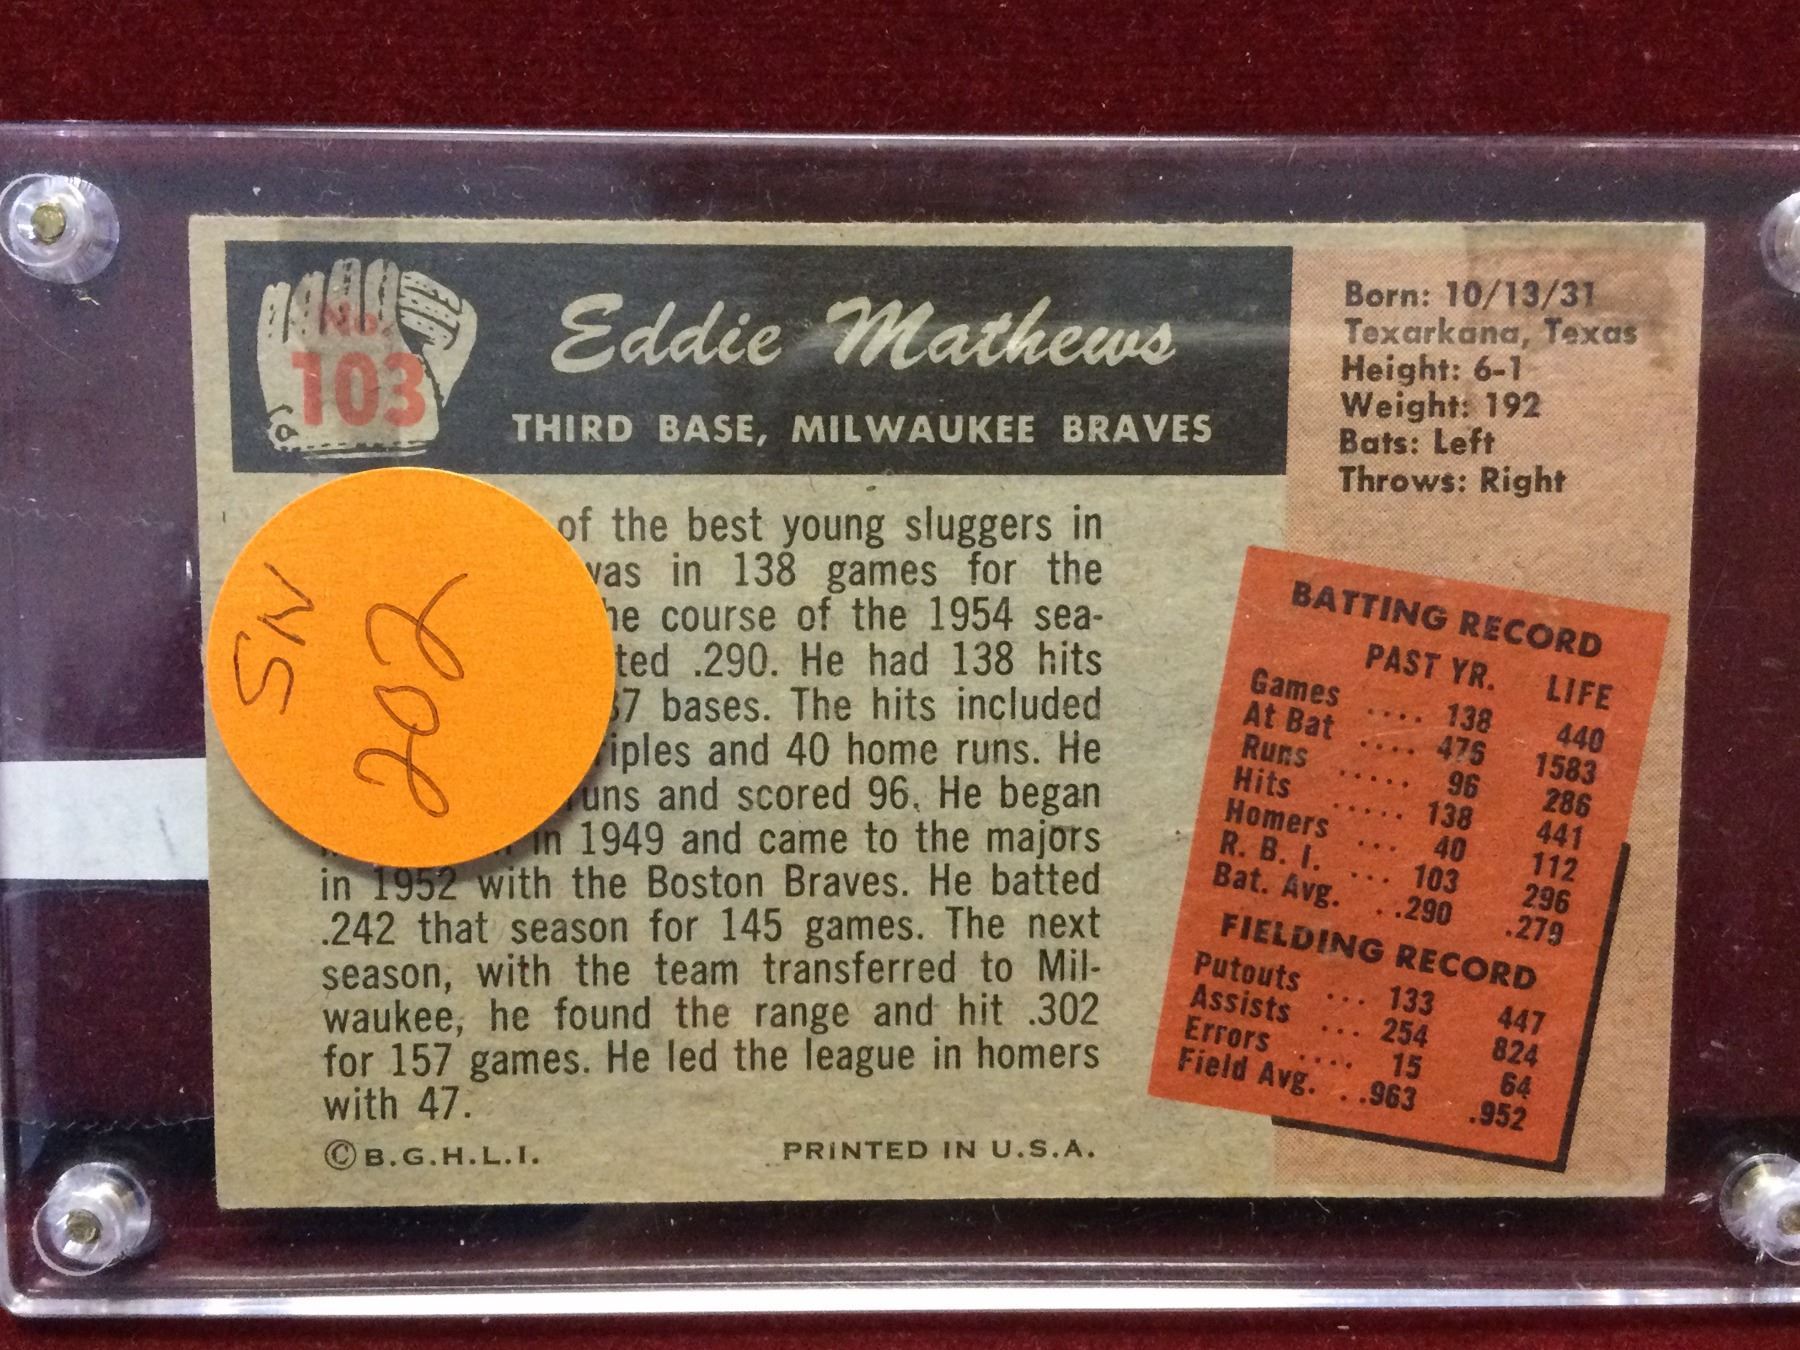 No.
103
Eddie Mathews
THIRD BASE, MILWAUKEE BRAVES
Born: 10/13/31
Texarkana, Texas
Height: 6-1
Weight: 192
Bats: Left
Throws: Right
SN
202
of the best young sluggers in
was in 138 games for the
he course of the 1954 sea-
ted .290. He had 138 hits
37 bases. The hits included
riples and 40 home runs. He
runs and scored 96. He began
in 1949 and came to the majors
in 1952 with the Boston Braves. He batted
.242 that season for 145 games. The next
season, with the team transferred to Mil-
waukee, he found the range and hit .302
for 157 games. He led the league in homers
with 47.
©B.G.H.L.I. PRINTED IN U.S.A.
BATTING RECORD
PAST YR. LIFE
Games .... 138 440
At Bat .... 476 1583
Runs ..... 96 286
Hits ..... 138 441
Homers ... 40 112
R. B. I. ... 103 296
Bat. Avg. . .290 .279
FIELDING RECORD
Putouts ... 133 447
Assists ... 254 824
Errors .... 15 64
Field Avg. . .963 .952